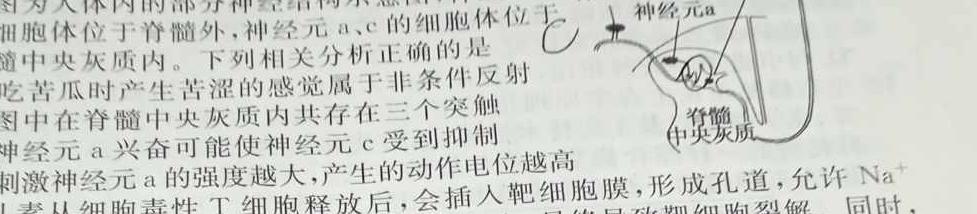 图为人体内的部分神经结构示意图
细胞体位于脊髓外,神经元a、c的细胞体位于
髓中央灰质内。下列相关分析正确的是
吃苦瓜时产生苦涩的感觉属于非条件反射
图中在脊髓中央灰质内共存在三个突触
神经元a兴奋可能使神经元c受到抑制
刺激神经元a的强度越大,产生的动作电位越高
素从细胞毒性T细胞释放后,会插入靶细胞膜,形成孔道,允许Na⁺
靶细胞裂解。同时,
C
神经元a
脊髓
中央灰质